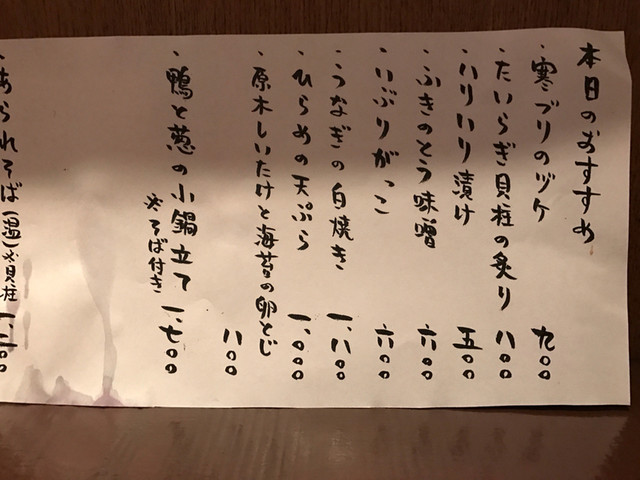 本日のおすすめ
・寒ブリのヅケ 九〇〇
・たいらぎ貝柱の炙り 八〇〇
・ハリハリ漬け 五〇〇
・ふきのとう味噌 六〇〇
・いぶりがっこ 六〇〇
・うなぎの白焼き 一、八〇〇
・ひらめの天ぷら 一、〇〇〇
・原木しいたけと海苔の卵とじ 八〇〇
・鴨と葱の小鍋立て 一、七〇〇
※そば付き
・あられそば(温)※貝柱 一、二〇〇